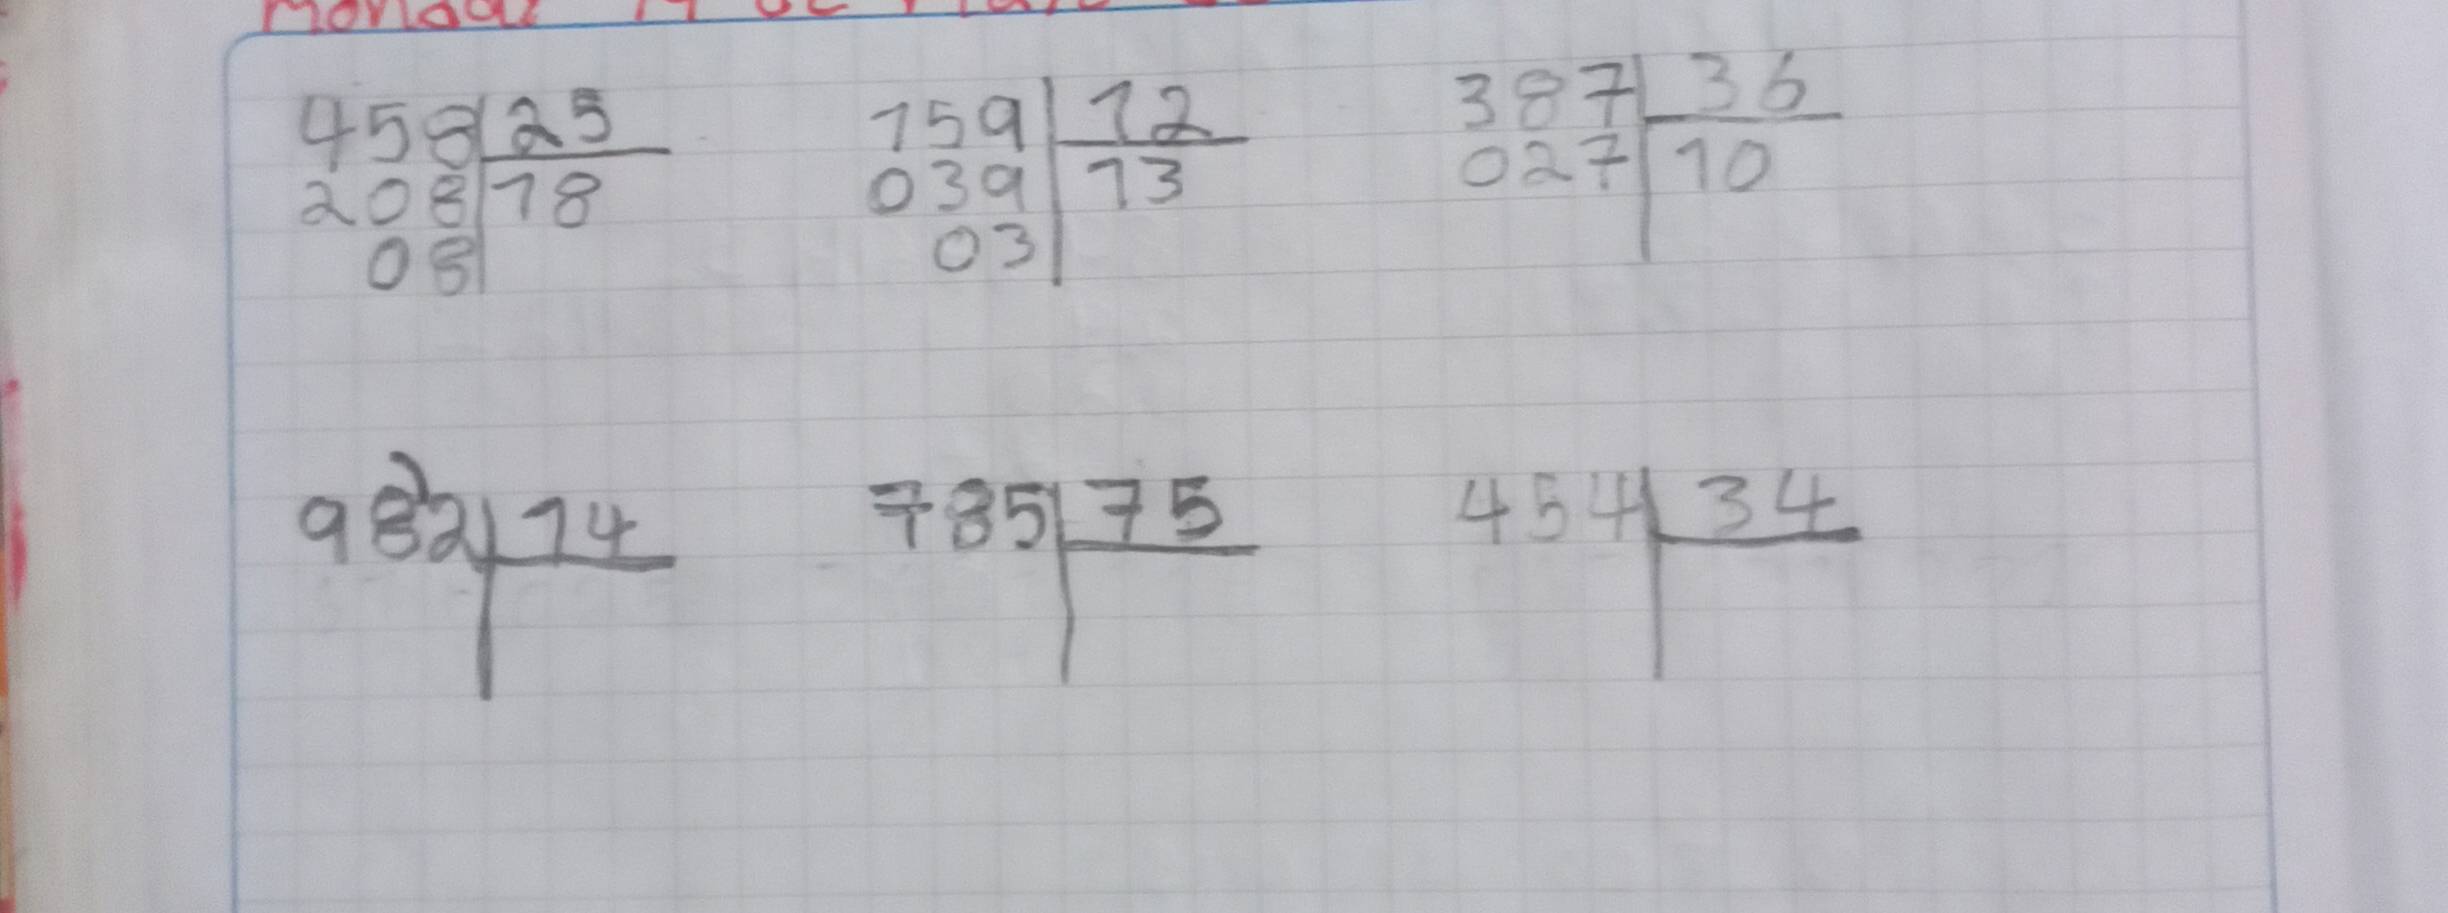 458 25
208 18
08
159 12
039 13
03
387 36
027 10
982 14
785 75
454 34